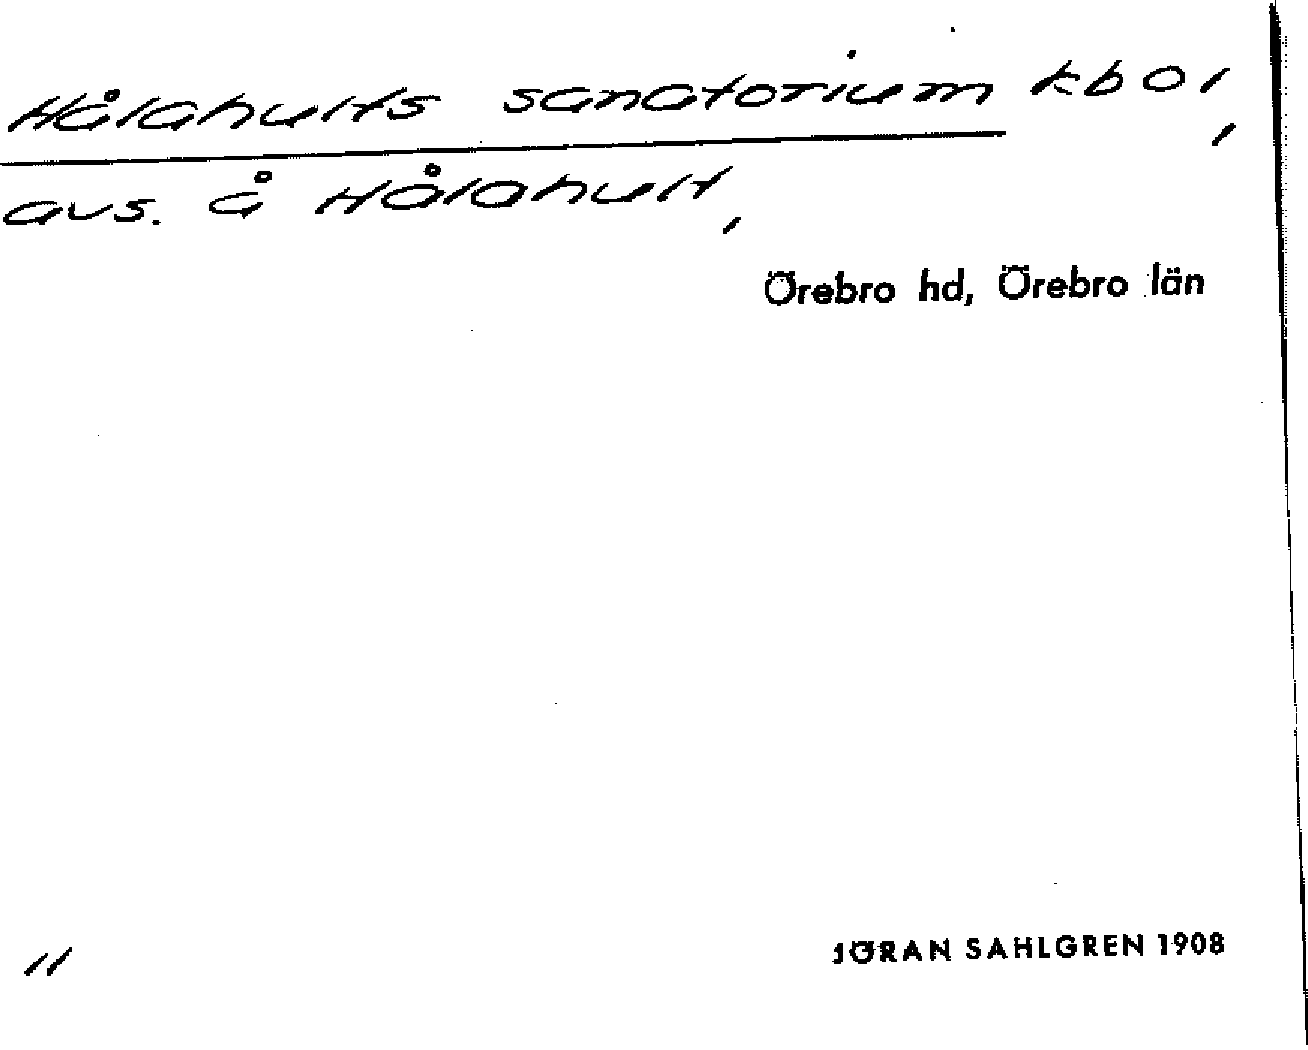 Hålahults sanatorium kbol,
avs. å Hålahult,
Örebro hd, Örebro län
JÖRAN SAHLGREN 1908